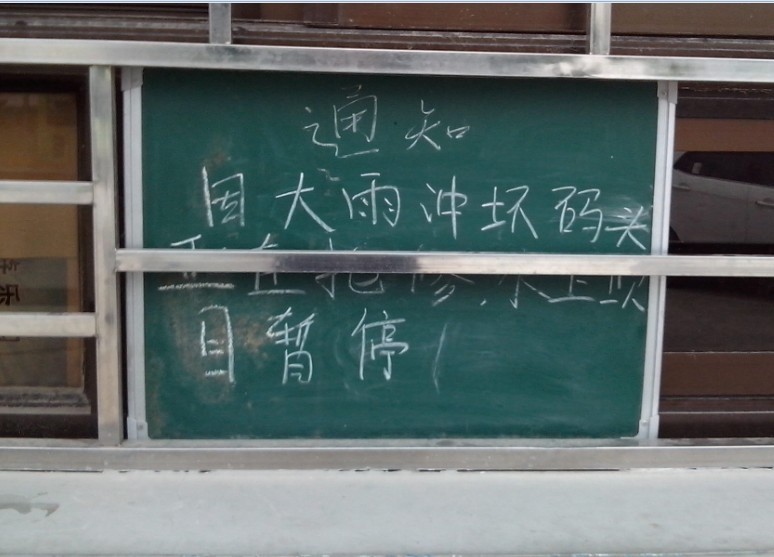 通知
因大雨冲坏码头
正在抢修,水上项
目暂停!